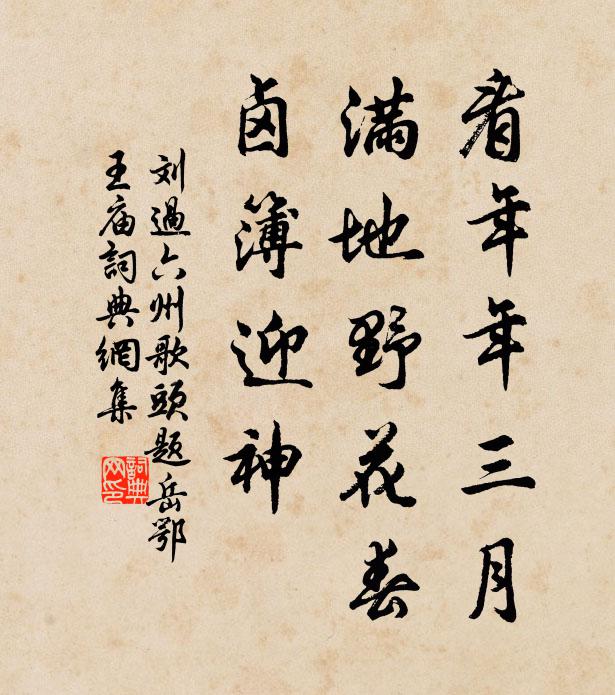 看年年三月
满地野花春
卤簿迎神
刘過六州歌頭題岳鄂
王庙詞典網集
詞典
网印